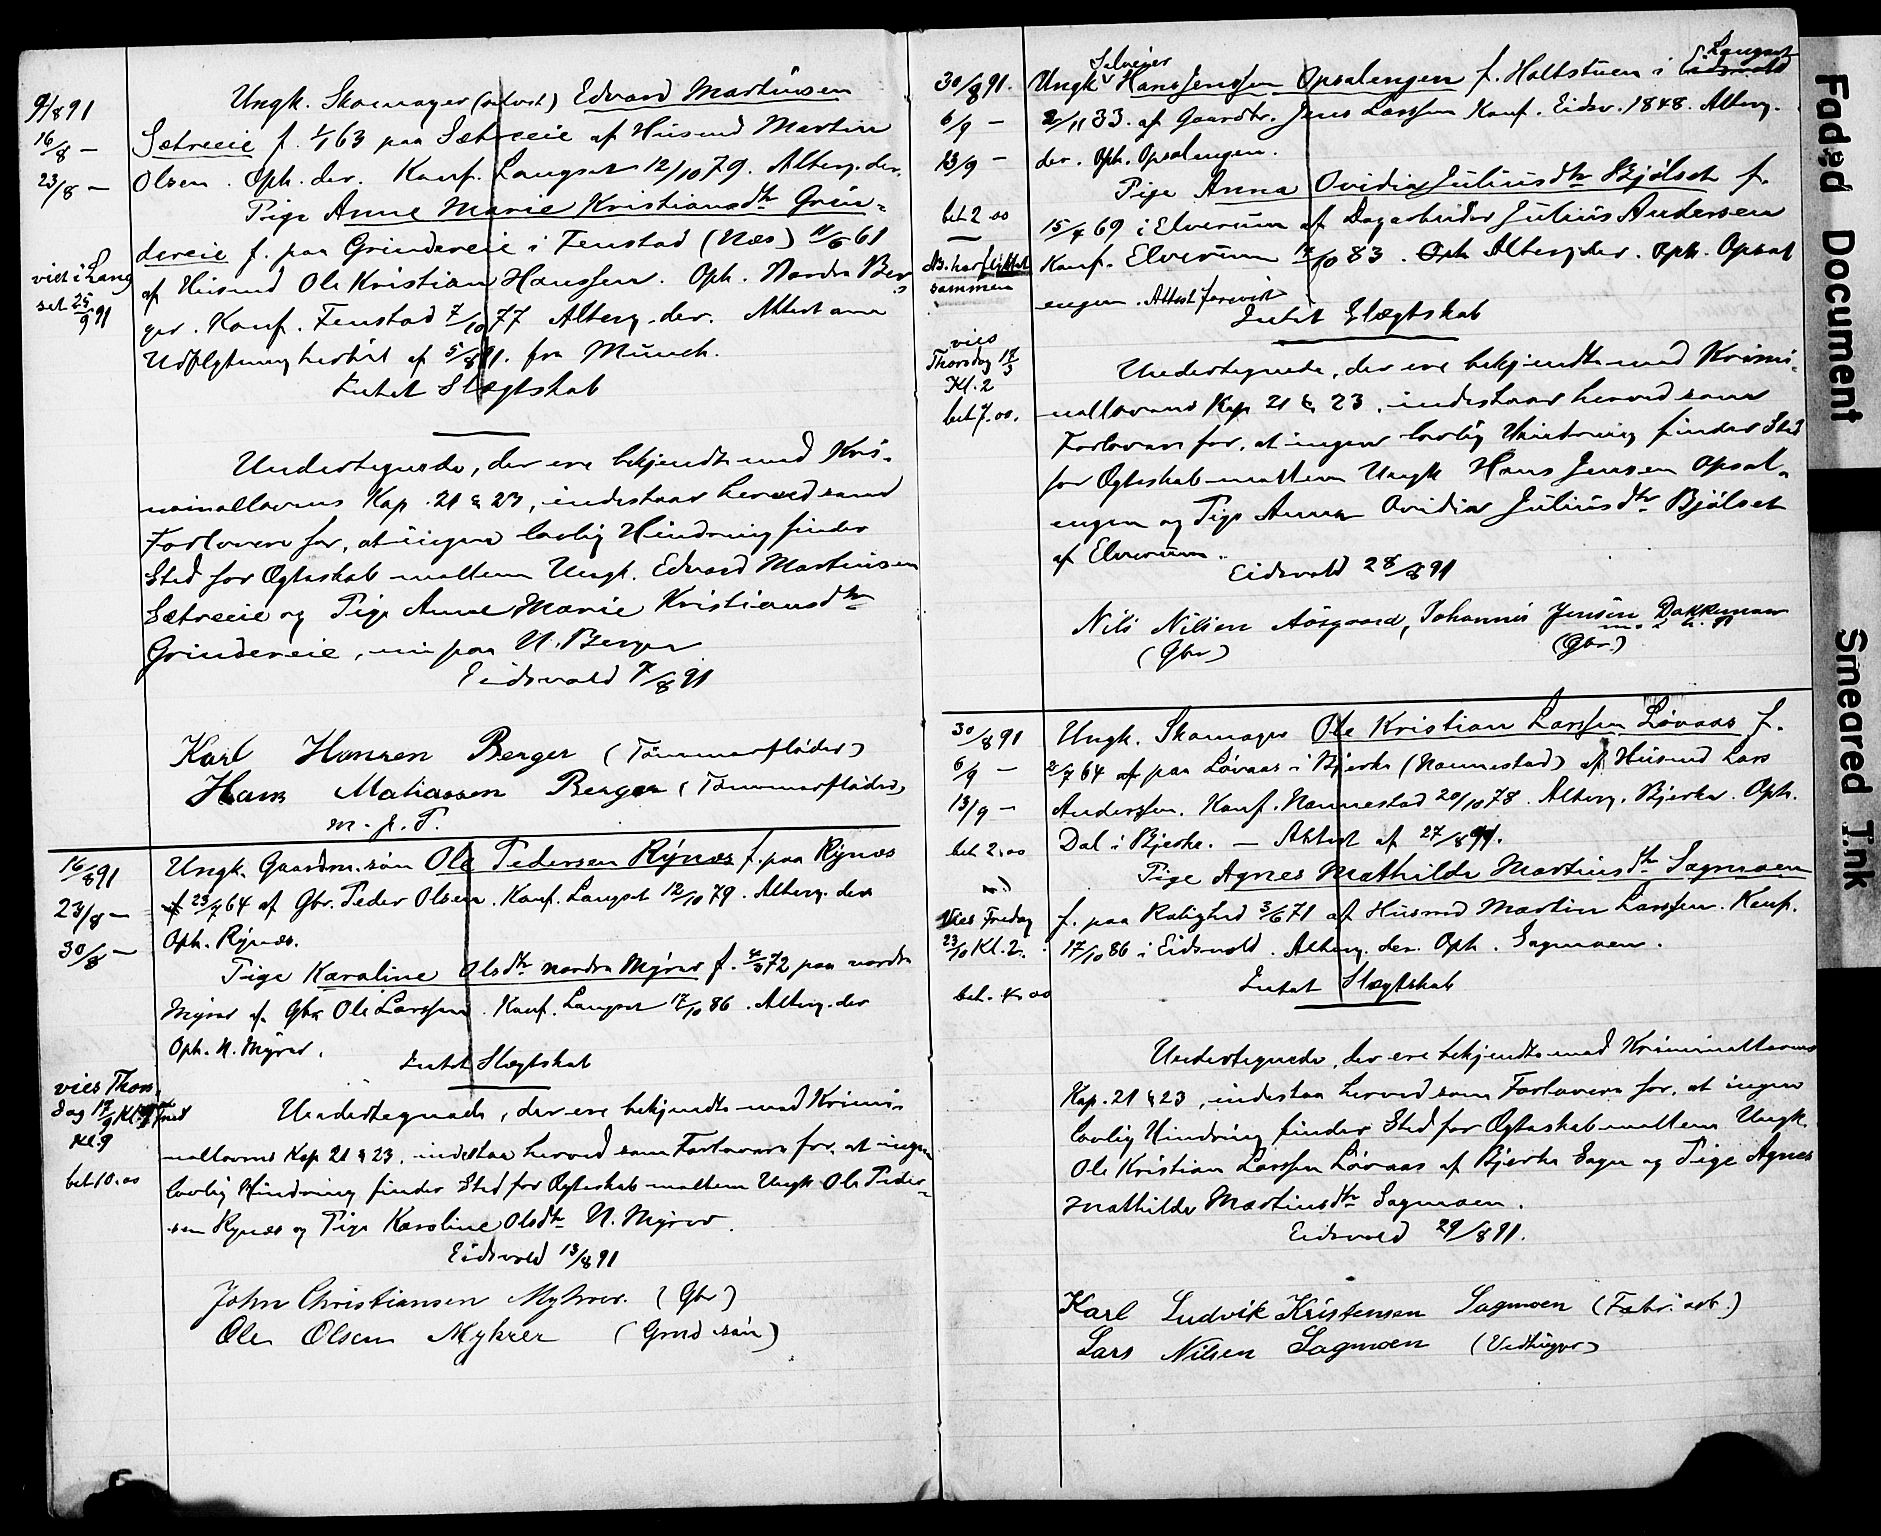 9/8 91
16/8 —
23/8 —
viet i Lang
set 25/9 91
Ungk. Skomager (advent) Edvard Martinsen
Sætreeie f. 1/1 63 paa Sætreeie af Husmd Martin
Olsen. Oph. der. Konf. Langset 12/10 79. Alterg. der.
Pige Anne Marie Kristiansdtr Grin-
dereie f. paa Grindereie i Fenstad (Næs) 61
af Husmd Ole Kristian Hanssen. Oph. Nordre Ber-
ger. Konf. Fenstad 7/10 77 Alterg. der. Attest om
Udflytning hertil af 5/8 91. fra Munch.
Intet Slægtskab
Undertegnede, der ere bekjendte med Kri-
minallovens Kap. 21 & 23, indestaar herved som
Forlovere for, at ingen lovlig Hindring finder
Sted for Ægteskab mellem Ungk. Edvard Martinsen
Sætreeie og Pige Anne Marie Kristiansdtr
Grindereie, nu paa N. Berger
Eidsvold 7/8 91
Karl Hansen Berger (Tømmerfløder)
Hans Matiassen Berger (Tømmerfløder)
m. p. P.
16/8 91
23/8 —
30/8 —
vies Thors
dag 17/9
Kl. 9
bet 10.00
Ungk. Gaardm.søn Ole Pedersen Rynæs f. paa Rynæs
23/7 64 af Gbr. Peder Olsen. Konf. Langset 12/10 79. Alterg. der
Oph. Rynæs.
Pige Karoline Olsdtr nordre Myrer f. 72 paa nordre
Myrer af Gbr Ole Larssen. Konf. Langset 17/10 86. Alterg. der
Oph. N. Myrer.
Intet Slægtskab
Undertegnede, der ere bekjendte med Krimi-
nallovens Kap 21 & 23, indestaa herved som Forlovere for, at ingen
lovlig Hindring finder Sted for Ægteskab mellem Ungk Ole Peder-
sen Rynæs og Pige Karoline Olsdtr N. Myrer.
Eidsvold 13/8 91
John Christiansen Myhrer. (Gbr)
Ole Olsen Myhrer (Grmd søn)
30/8 91.
6/9 —
13/9 —
bet 2.00
NB. har flyttet
sammen
vies
Thorsdag 17/
Kl. 2
bet 7.00.
Selveier Langset
Ungk Hans Jenssen Opsalengen f. Holtstuen i Eidsvold
2/11 33. af Gaardbr. Jens Larssen Konf. Eidsv. 1848. Alterg.
der. Oph. Opsalengen.
Pige Anna Ovidia Juliusdtr Bjølset f.
15/4 69 i Elverum af Dagarbeider Julius Andersen
Konf. Elverum /10 83. Oph Alterg. der. Oph. Opsal
engen. Attest forevist
Intet Slægtskab
Undertegnede, der ere bekjendte med Krimi-
nallovens Kap 21 & 23, indestaar herved som
Forlovere for, at ingen lovlig Hindring finder Sted
for Ægteskab mellem Ungk Hans Jensen Opsal-
engen og Pige Anna Ovidia Juliusdtr Bjølset
af Elverum.
Eidsvold 28/8 91
Nils Nilsen Aasgaard, Johannes Jensen Bakkemoen
(Gbr) (Gbr.)
30/8 91
6/9 —
13/9 —
bet 2.00
Vies Fredag
23/10 Kl. 2.
bet. 4.00
Ungk. Skomager Ole Kristian Larssen Løvaas f.
2/7 64 af paa Løvaas i Bjerke (Nannestad) af Husmd Lars
Anderssen. Konf. Nannestad 20/10 78. Alterg. Bjerke. Oph.
Dal i Bjerke. — Attest af 27/8 91.
Pige Agnes Mathilde Martinsdtr Sagmoen
f. paa Rolighed 3/6 71 af Husmd Martin Larssen. Konf.
17/10 86 i Eidsvold. Alterg. der. Oph. Sagmoen.
Intet Slægtskab
Undertegnede, der ere bekjendte med Kriminallovens
Kap. 21 & 23, indestaa herved som Forlovere for, at ingen
lovlig Hindring finder Sted for Ægteskab mellem Ungk.
Ole Kristian Larssen Løvaas af Bjerke Sogn og Pige Agnes
Mathilde Martinsdtr Sagmoen.
Eidsvold 29/8 91.
Karl Ludvik Kristensen Sagmoen (Fabr. arb.)
Lars Nilsen Sagmoen (Vedhugger)
Faded Document
Smeared Ink